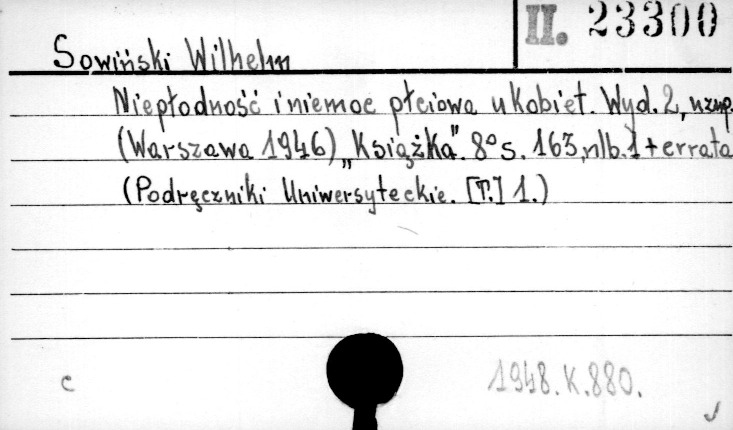 II. 23300
Sowiński Wilhelm
Niepłodność i niemoc płciowa u kobiet. Wyd. 2, uzup.
(Warszawa 1946) „Książka". 8° s. 163, nlb. 1 + errata
(Podręczniki Uniwersyteckie. [T.] 1.)
c
1948. K. 880.